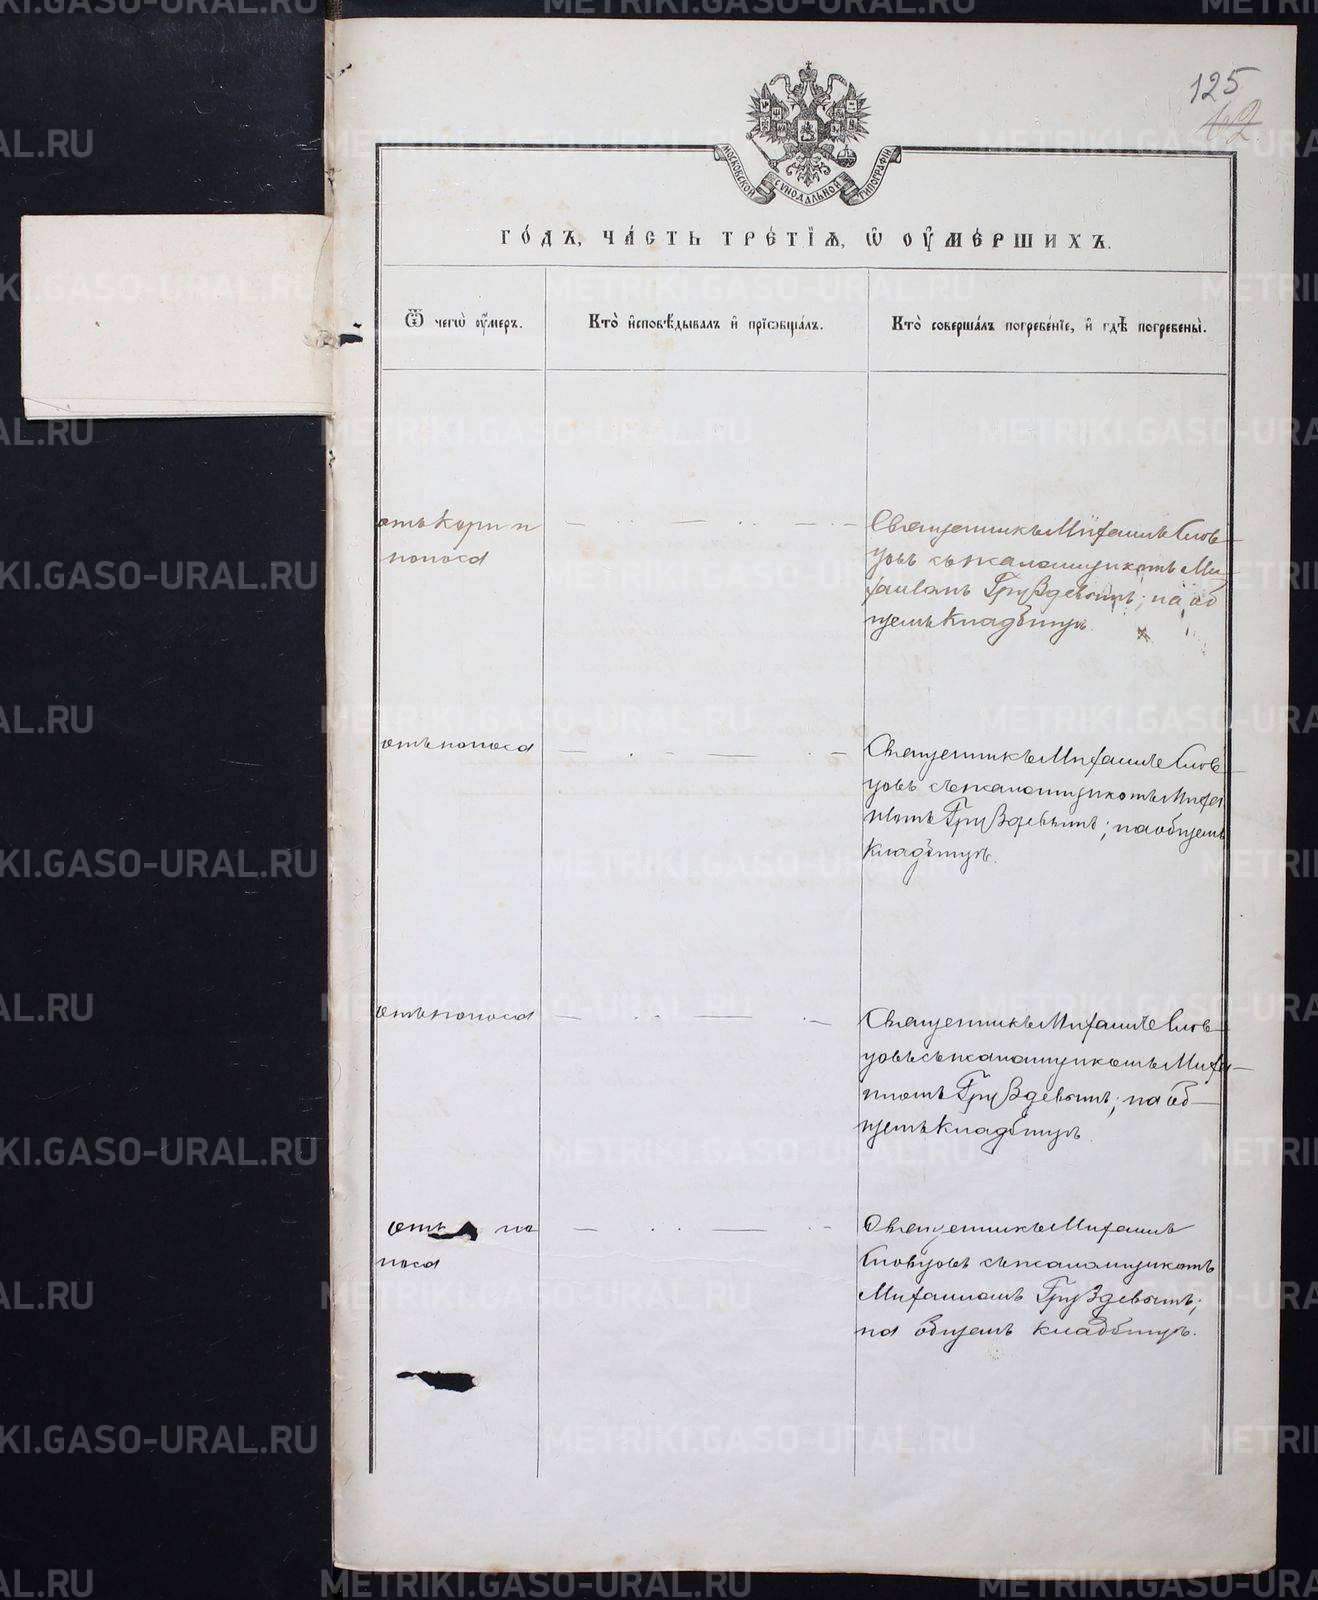 125
62
МОСКОВСКОЙ СѴНОДАЛЬНОЙ ТИПОГРАФІИ
ГО́ДЪ, ЧА́СТЬ ТРЕ́ТІѦ, Ѡ҆ ОУ҆МЕ́РШИХЪ.
Ѿ чегѡ̀ оу҆́меръ.
Кто̀ и҆сповѣ́дывалъ и҆ прїѡбща́лъ.
Кто̀ соверша́лъ погребе́нїе, и҆ гдѣ̀ погребены̀.
отъ кори и
поноса
Священникъ Михаилъ Слов-
цовъ съ псаломщикомъ Ми-
хаиломъ Груздевымъ; на об
щемъ кладбищѣ.
отъ поноса
Священникъ Михаилъ Слов-
цовъ съ псаломщикомъ Михаи
ломъ Груздевымъ; на общемъ
кладбищѣ.
отъ поноса
Священникъ Михаилъ Слов-
цовъ съ псаломщикомъ Михаи-
ломъ Груздевымъ; на об-
щемъ кладбищѣ
отъ по
носа
Священникъ Михаилъ
Словцовъ съ псаломщикомъ
Михаиломъ Груздевымъ;
на общемъ кладбищѣ.
METRIKI.GASO-URAL.RU